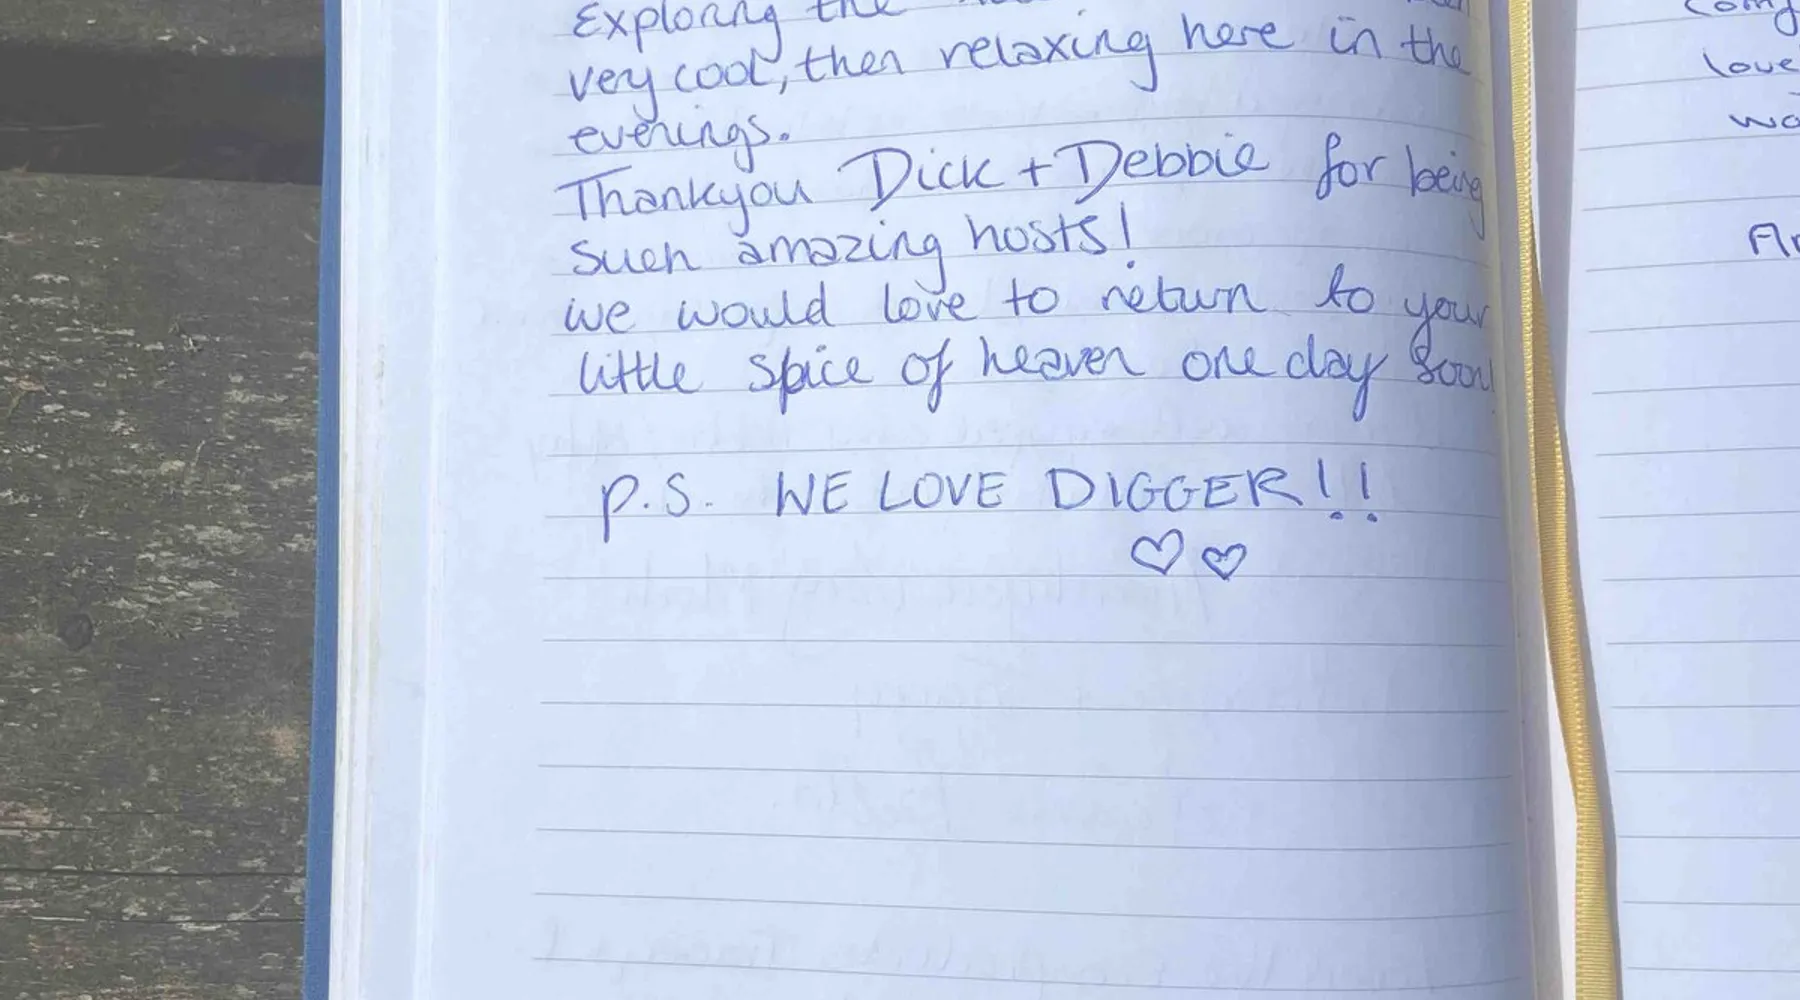 Exploring the
very cool, then relaxing here in the
evenings.
Thankyou Dick + Debbie for being
such amazing hosts!
we would love to return to your
little spice of heaven one day soon!
P.S. WE LOVE DIGGER!!
♡ ♡
love